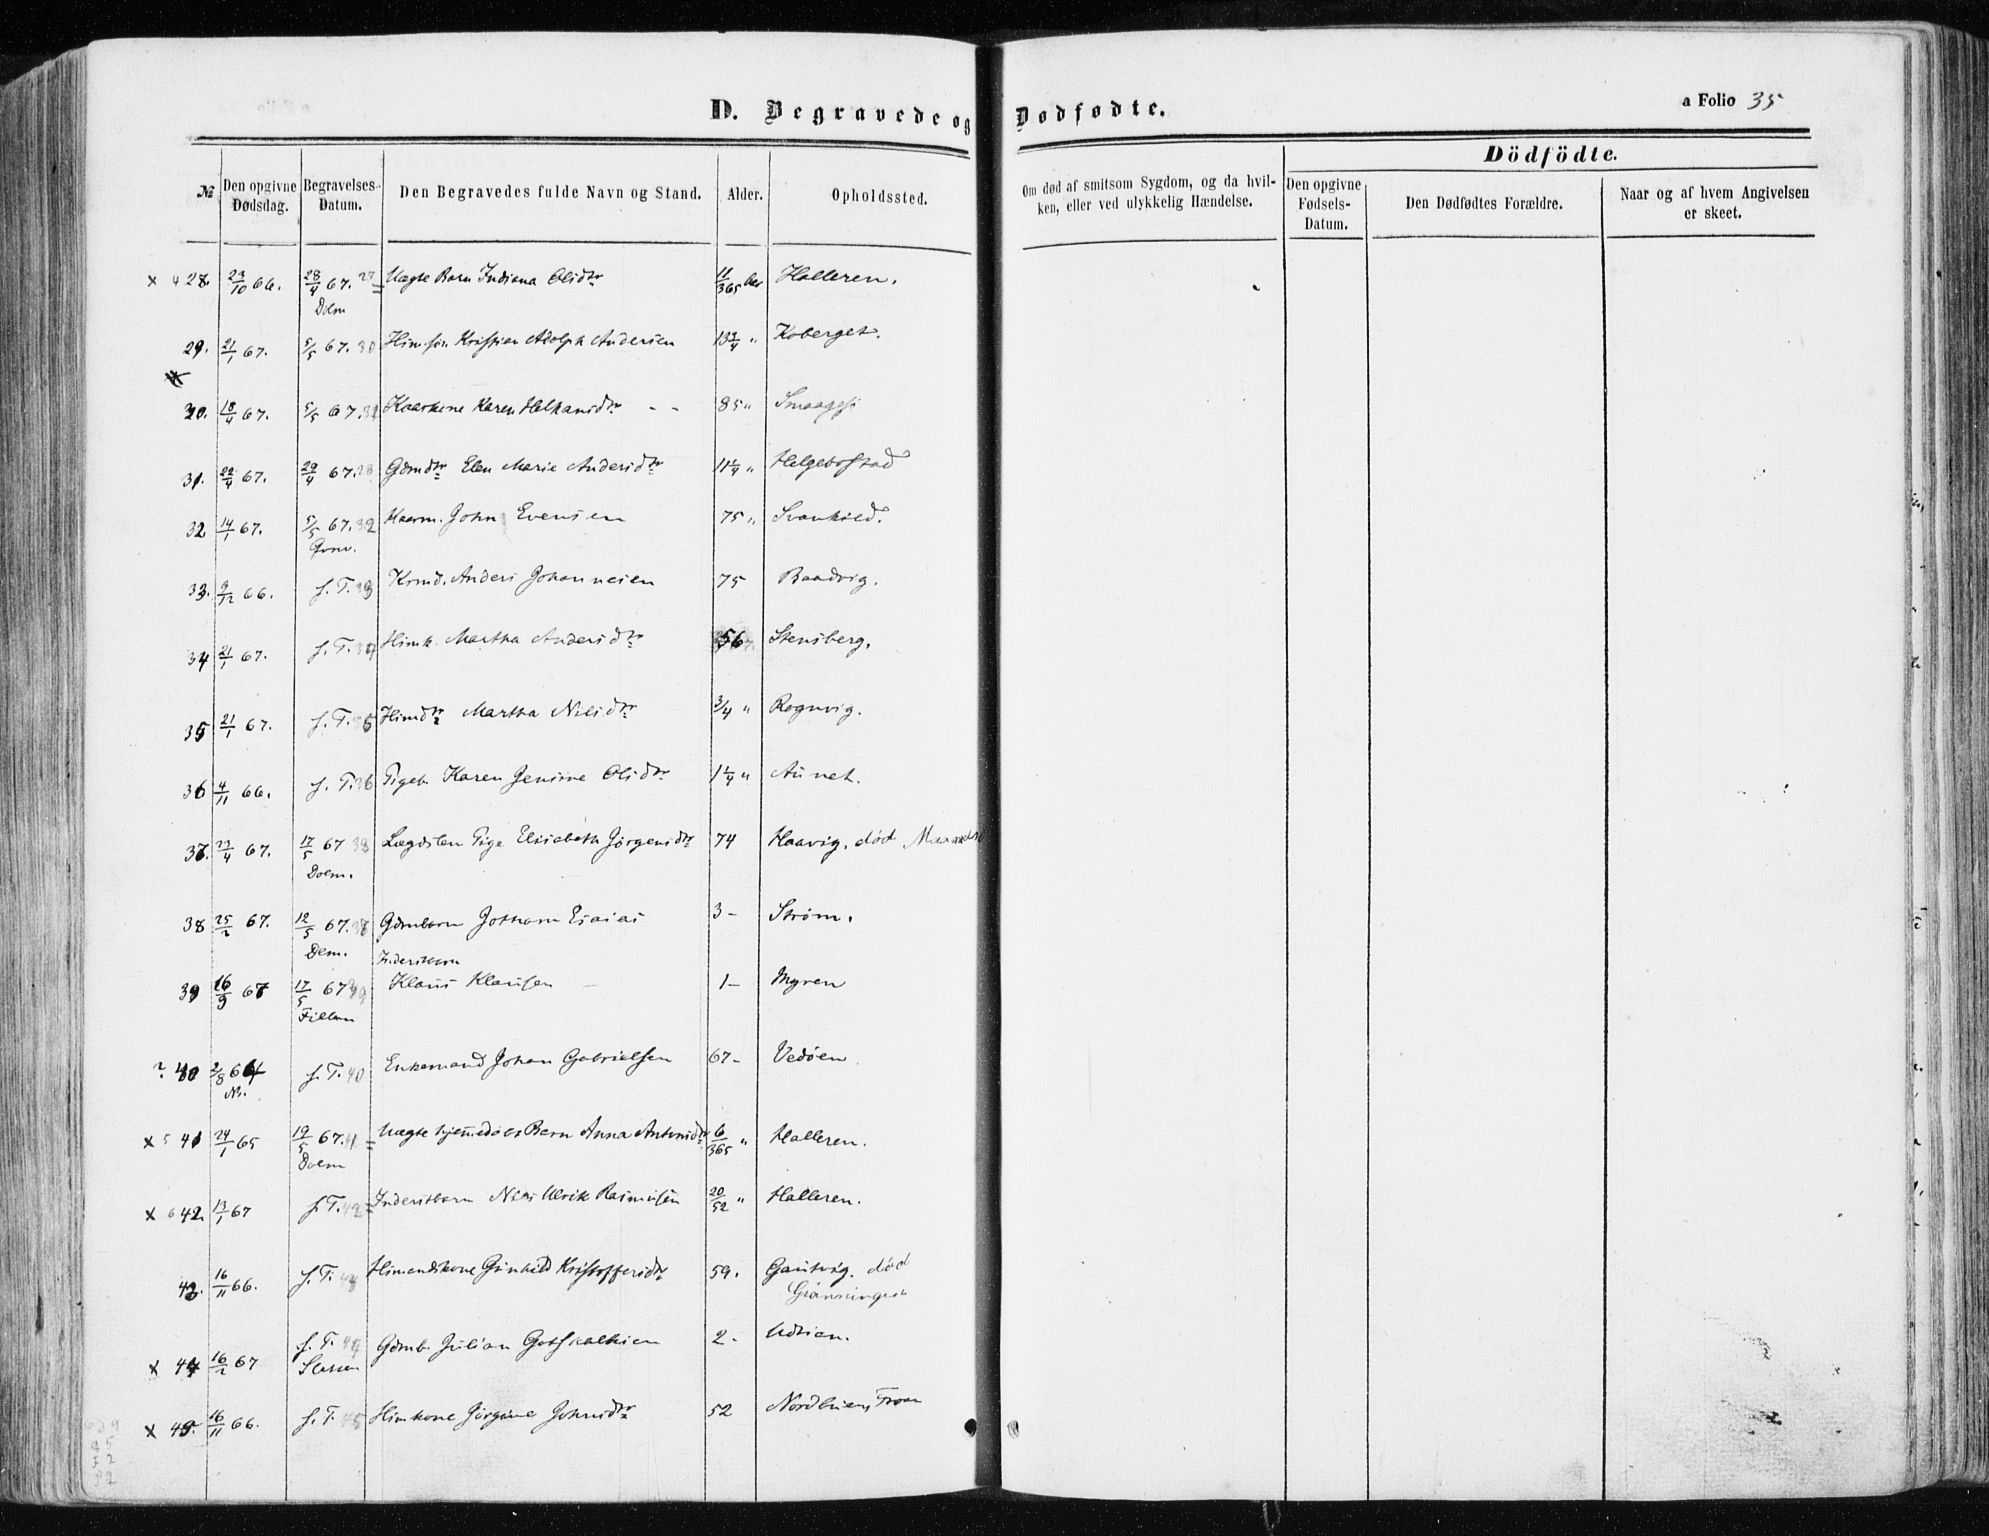 D. Begravede og Dødfødte.
a Folio 35
Dödfödte.
№ Den opgivne Dødsdag. Begravelses-Datum. Den Begravedes fulde Navn og Stand. Alder. Opholdssted. Om død af smitsom Sygdom, og da hvilken, eller ved ulykkelig Hændelse. Den opgivne Fødsels-Datum. Den Dødfødtes Forældre. Naar og af hvem Angivelsen er skeet.
x 4 28. 23/10 66. 28/4 67. 27 Uægte Barn Indiana Olsdtr 11/365 Halleren.
Dolm
29. 21/1 67. 5/5 67. 30 Kristian Adolph Andersen 13 3/4 " Koberget.
30. 18/4 67. 5/5 67. 31 Kaarkone Karen - - 85 "
31. 22/4 67. 29/4 67. 28 Gdmdtr Elen Marie Andersdtr 11 1/4 " Helgebostad
32 14/1 67. 5/5 67. 32 Kaarm. John Evensen 75 " Svankild.
33. 9/12 66. f. T. 33 Anders Johannesen 75 Baadvig.
34 21/1 67. f. T. 34 Martha Andersdtr 56 Stensberg.
35 21/1 67. f. T. 35 Martha Nilsdtr 3/4 " Rognvig.
36 4/11 66. f. T. 36 Pigeb. Karen Jensine Olsdtr 1 1/4 " Aunet.
37. 23/4 67. 17/5 67 38 Lægdslem Pige Elisabeth Jörgensdtr 74 Haavig. død
Dolm.
38 25/2 67. 12/5 67. 38 Gdmbarn Jotham Esaias 3 - Strøm.
Dolm.
Inderstbarn
39 16/3 67 17/5 67 39 Klaus Klausen 1 - Myren
Fillan
? 40 2/8 64 f. T. 40 Enkemand Johan Gabrielsen 67 - Vedöen
x 5 41 24/1 65 19/5 67. 41 Uægte hjemedöbt Barn Anna Antonsdtr 6/365 " Halleren.
Dolm
x 6 42. 13/1 67 f. T. 42 Inderstbarn Nils Ulrik Rasmusen 20/52 " Halleren.
43. 16/11 66. f. T. 43 Gunhild Kristoffersdtr 59. død
x 44 16/2 67 f. T. 44 Gdmb. Julian Gotskalksen 2 - Udsian.
Slassen
x 45. 16/11 66. f. T. 45 Jörgine Johnsdtr 52 Froan